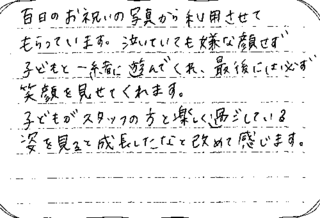 百日のお祝いの写真から利用させて
もらっています。泣いていても嫌な顔せず
子どもと一緒に遊んでくれ、最後には必ず
笑顔を見せてくれます。
子どもがスタッフの方と楽しく過ごしている
姿を見ると成長したなと改めて感じます。